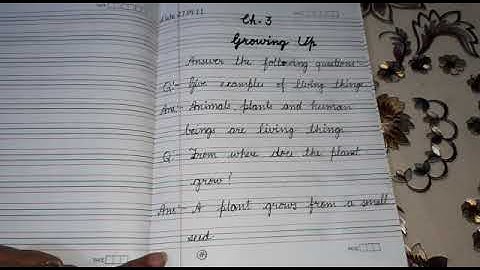 Ch. 3
Growing Up
Answer the following questions:-
Q:- Give examples of living things.
Ans:- Animals, plants and human
beings are living things.
Q:- From where does the plant
grow?
Ans:- A plant grows from a small
seed.